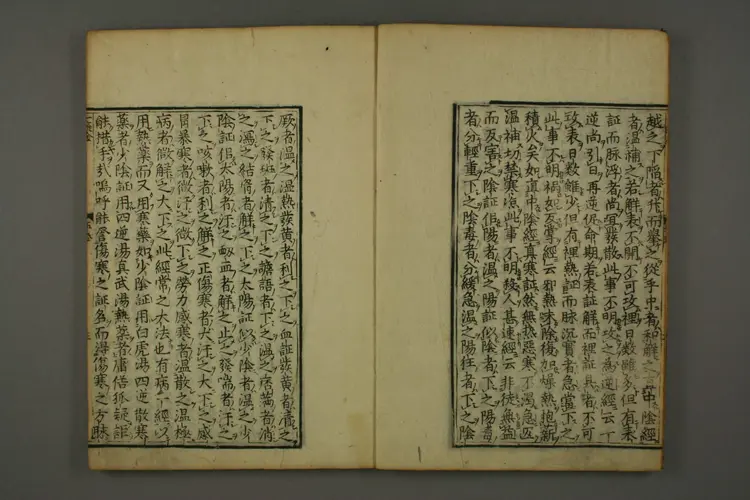 越之下陷者升而舉之從乎中者和解之直中陰經
者溫補之若觧表不開不可攻裡日數雖多但有表
証而脉浮者尚宜發散此事不明攻之為逆經云一
逆尚引日再逆促命期若表証觧而裡証具者不可
攻表日數雖少但有裡熱証而脉沉實者急當下之
此事不明禍如反掌經云邪熱未除復加燥熱抱薪
積火矣如直中陰經真寒証無熱惡寒不渴急宜
溫補切禁寒凉此事不明殺人甚速經云非徒無益
而反害之陰証似陽者溫之陽証似陰者下之陽毒
者分輕重下之陰毒者分緩急溫之陽狂者下之陰
厥者溫之濕熱發黃者利之下之血証發黃者清之
下之發班者清之下之譫語者下之溫之痞滿者消
之瀉之結胷者觧之下之太陽証似少陰者溫之少
陰証似太陽者汗之衂血者觧之止之發喘者汗之
下之咳嗽者利之觧之正傷寒者大汗之大下之感
冒暴寒者微汗之微下之勞力感寒者溫散之溫極
病者微觧之大下之此經常之大法也有病一經以
用熱藥而又用寒藥如少陰証用白虎湯四逆散寒
藥者少陰証用四逆湯真武湯熱藥者庸俗狐疑詎
能措手𢪛嗚呼能誉傷寒之証名而得傷寒之方脉